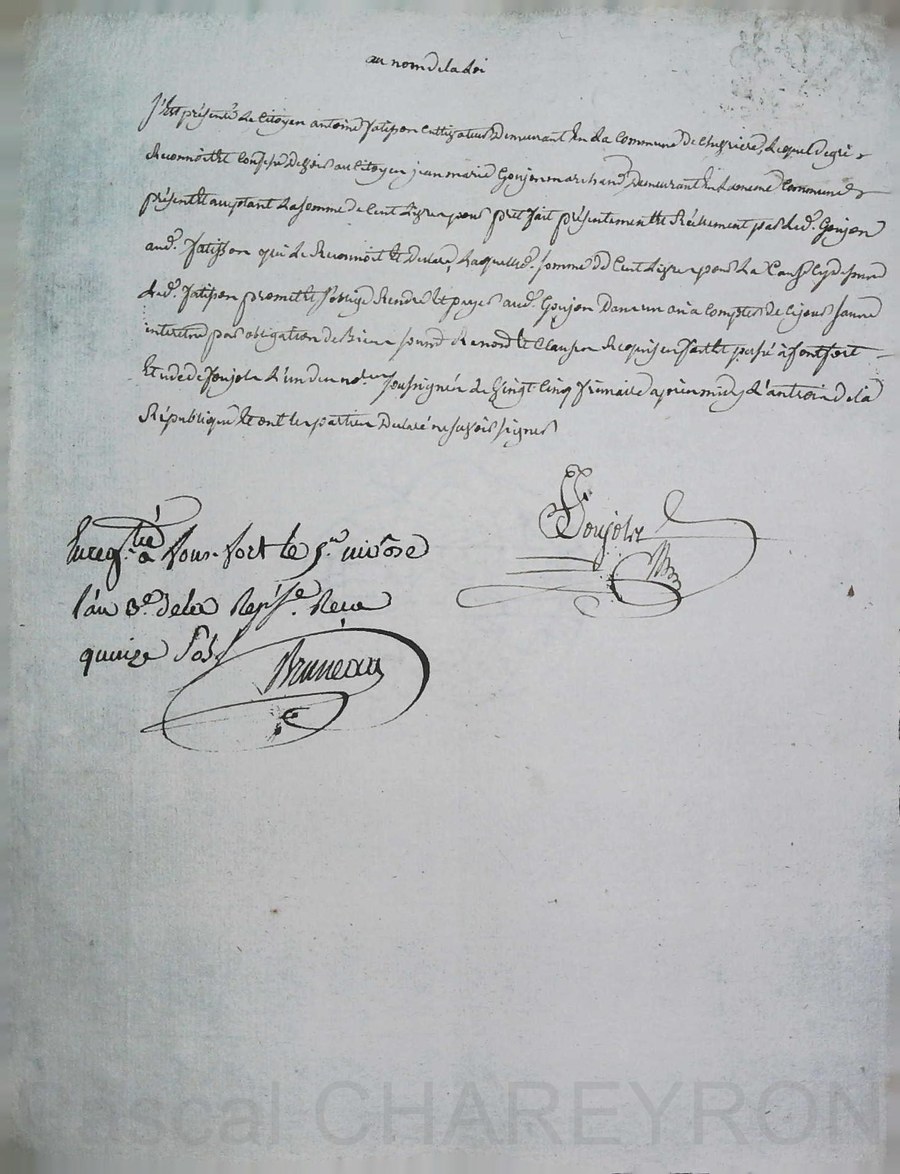 au nom de la loi
S'est présenté le Citoyen antoine fatisson Cultivateur Demeurant En la Commune de chugriere, lequel de gré
Reconnoitre Confesse devoir au Citoyen jean marie Goujon marchand Demeurant En la meme Commune
présent acceptant la somme de Cent Livres pour pret fait présentement Et Réellement par led. Goujon
aud. fatisson qui le Reconnoit Et Declare, Laquelle d. somme de Cent Livres pour la Cause Cy dessus
led. fatisson promet Et s'oblige Rendre Et payer aud. Goujon Dans un an a Compter de Ce jour sauve
interetre par obligation de Biens soumd. Renond. Et Clauses Requises fait Et passé à fontfort
Etude de Soujols L'un des no.res soussignés Le Vingt Cinq frimaire apres midy L'an trois de la
République Et ont les parties Declaré ne savoir signer
Soujols
Enreg.tré a fons-fort le 5.e nivôse
l'an 3.e de la Rep.e Reçu
quinze sols
Bruneau
Pascal CHAREYRON